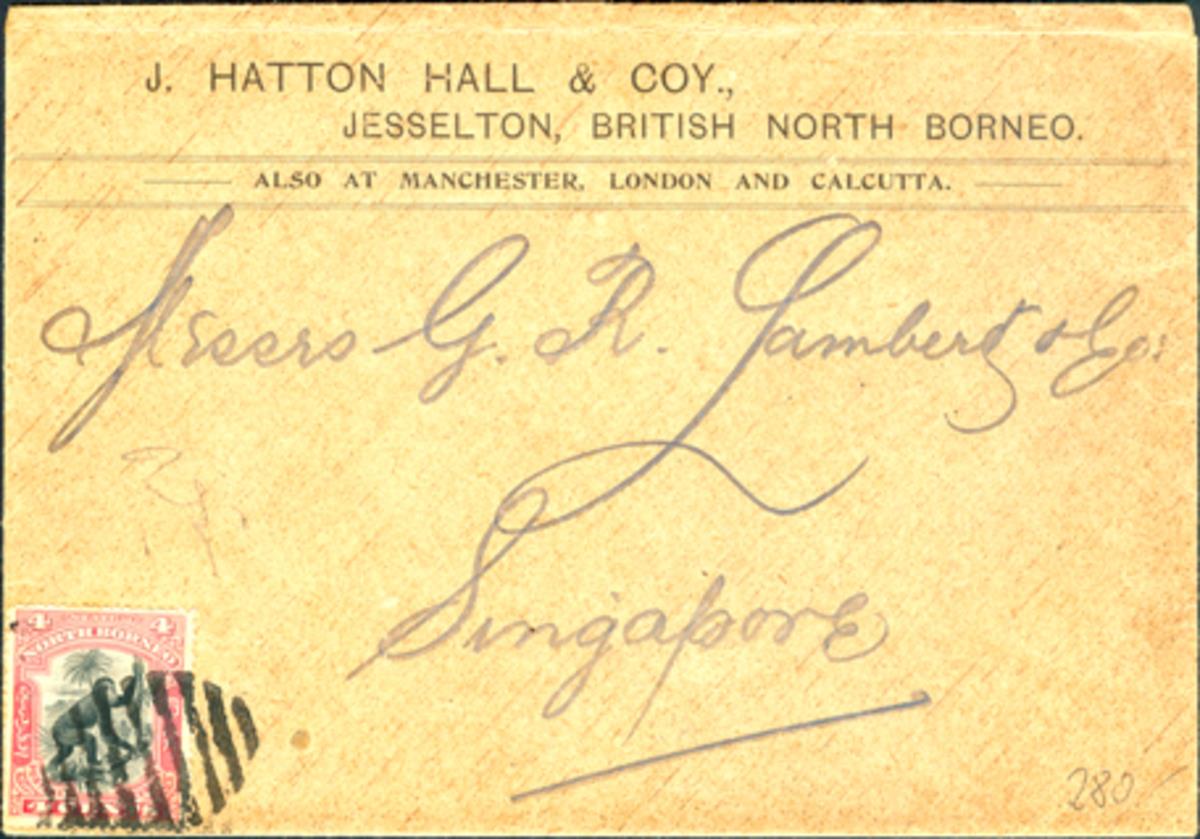 J. HATTON HALL & COY.,
JESSELTON, BRITISH NORTH BORNEO.
ALSO AT MANCHESTER, LONDON AND CALCUTTA.
Messrs G. R. Lambert & Co:
Singapore
4 4
NORTH BORNEO
280